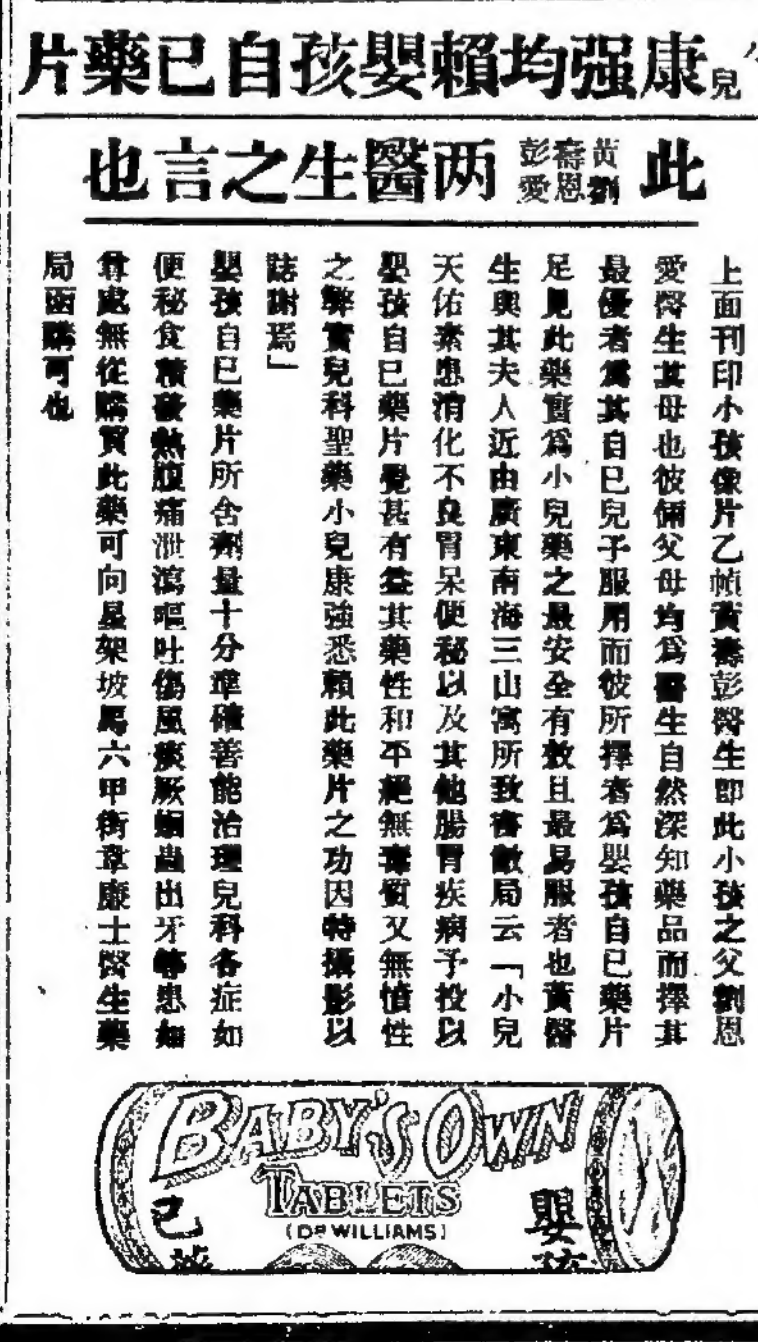 兒康强均賴嬰孩自已藥片
此黃壽彭劉恩愛两醫生之言也
上面刊印小孩像片乙幀黃壽彭醫生即此小孩之父劉恩
愛醫生其母也彼倆父母均爲醫生自然深知藥品而擇其
最優者爲其自已兒子服用而彼所擇者爲嬰孩自已藥片
足見此藥實爲小兒藥之最安全有效且最易服者也黃醫
生與其夫人近由廣東南海三山寓所致書敝局云「小兒
天佑素患消化不良胃呆便秘以及其他腸胃疾病予投以
嬰孩自已藥片覺甚有益其藥性和平絕無毒質又無慣性
之弊實兒科聖藥小兒康強悉賴此藥片之功因特攝影以
誌謝焉」
嬰孩自已藥片所含劑量十分準確善能治理兒科各症如
便秘食積發熱腹痛泄瀉嘔吐傷風痰厥蛔蟲出牙等患如
貴處無從購買此藥可向星架坡馬六甲街韋廉士醫生藥
局函購可也
BABY'S OWN
TABLETS
(DR WILLIAMS)
嬰孩
己藥